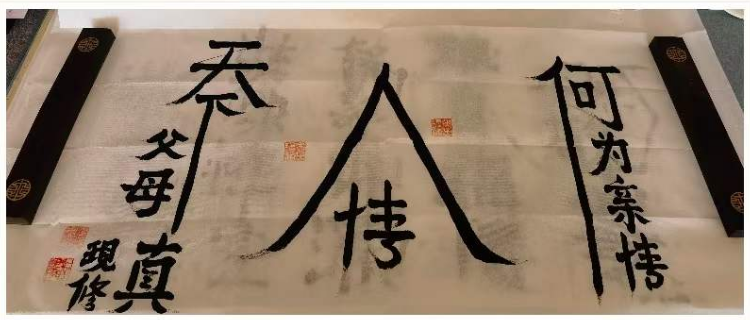 何为亲情
人情
天下
父母真
现修